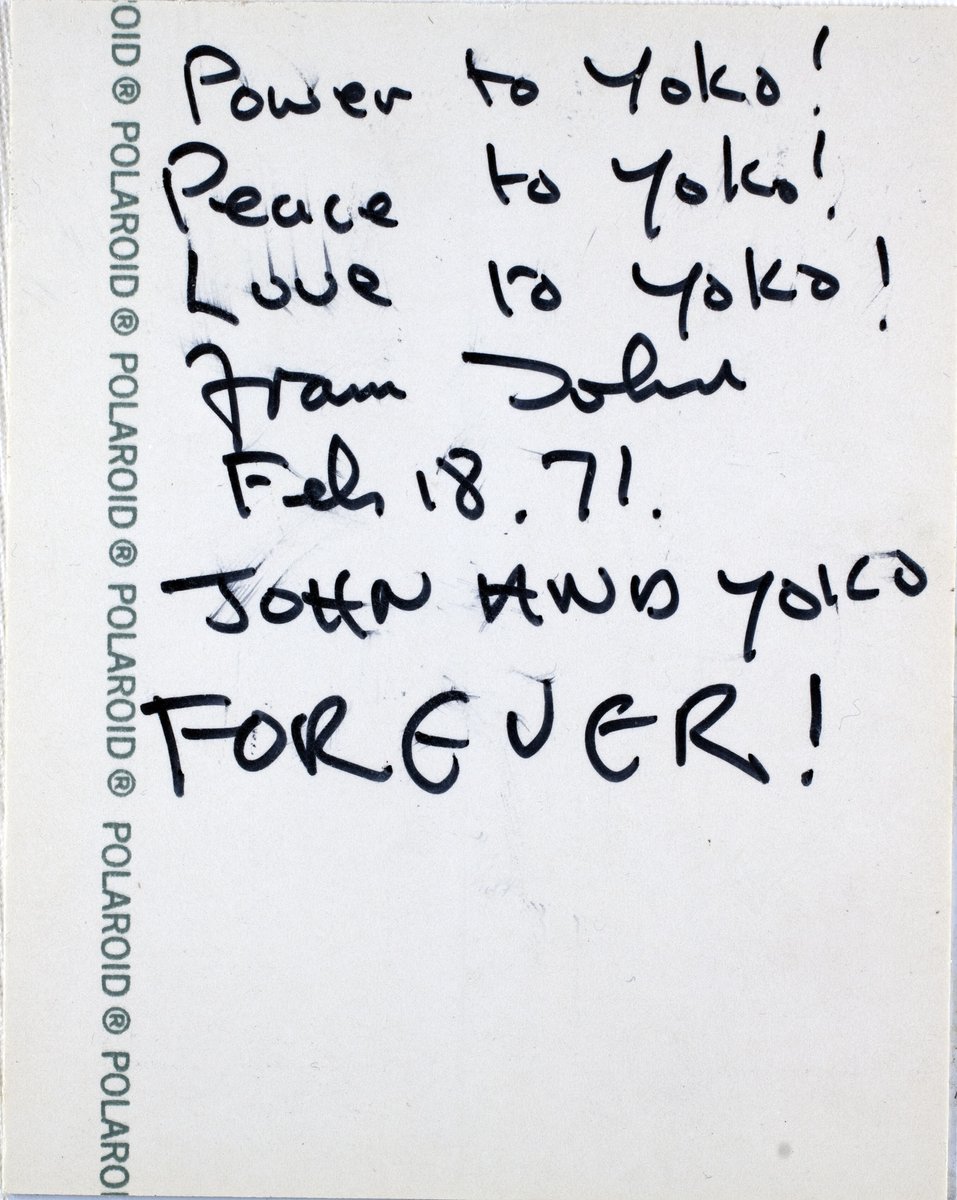 Power to Yoko!
Peace to Yoko!
Love to Yoko!
from John
Feb 18. 71.
JOHN AND YOKO
FOREVER!
OID ® POLAROID ® POLAROID ® POLAROID ® POLAROID ® POLARO